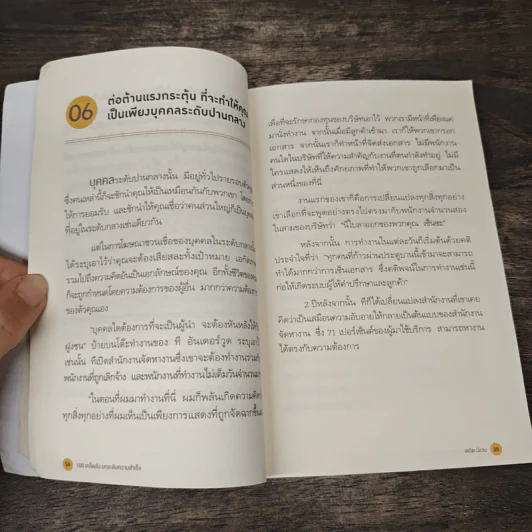 06
ต่อต้านแรงกระตุ้น ที่จะทำให้คุณ
เป็นเพียงบุคคลระดับปานกลาง
บุคคลระดับปานกลางนั้น มีอยู่ทั่วไปรายรอบตัว
ซึ่งคนเหล่านี้ก็จะชักนำคุณให้เป็นเหมือนกันกับพวกเขา
ให้การยอมรับ และชักนำให้คุณเชื่อว่าคนส่วนใหญ่ก็เป็น
ที่อยู่ในระดับกลางเช่นเดียวกัน
แต่ในการโฆษณาชวนเชื่อของบุคคลในระดับกลาง
ได้ระบุเอาไว้ว่าคุณจะต้องเสียสละทั้งเป้าหมาย
รวมไปถึงความคิดอันเป็นเอกลักษณ์ของคุณ อีกทั้งชีวิต
ก็จะถูกกำหนดโดยความต้องการของผู้อื่น มากกว่าความต้องการ
ของตัวคุณเอง
"บุคคลใดต้องการที่จะเป็นผู้นำ จะต้องหันหลังให้
ฝูงชน" ป้ายบนโต๊ะทำงานของ ที อันเดอร์วูด ระบุเอาไว้
เช่นนั้น ที่เปิดสำนักงานจัดหางานซึ่งเขาจะต้องทำงานร่วมกับ
พนักงานที่ถูกเลิกจ้าง และพนักงานที่ทำงานไม่เต็มวันจำนวน
"ในตอนที่ผมมาทำงานที่นี่ ผมก็พลันเกิดความคิด
ทุกสิ่งทุกอย่างที่ผมเห็นเป็นเพียงการแสดงที่ถูกจัดฉากขึ้น
54
100 เคล็ดลับ ยกระดับความสำเร็จ
เพื่อที่จะรักษากองทุนของบริษัทเอาไว้ พวกเรามีหน้าที่เพียงแค่
มานั่งทำงาน จากนั้นเมื่อมีลูกค้าเข้ามา เราก็ให้พวกเขากรอก
เอกสาร จากนั้นเราก็ทำหน้าที่จัดส่งเอกสาร ไม่มีพนักงาน
คนใดในบริษัทที่ให้ความสำคัญกับงานที่ตนกำลังทำอยู่ ไม่มี
ใครแสดงให้เห็นถึงศักยภาพที่ทำให้พวกเขาถูกเลือกมาเป็น
ส่วนหนึ่งของที่นี่
งานแรกของเขาก็คือการเปลี่ยนแปลงทุกสิ่งทุกอย่าง
เขาเลือกที่จะพูดอย่างตรงไปตรงมากับพนักงานจำนวนสอง
ในสามของบริษัทว่า "นี่ใบลาออกของพวกคุณ เซ็นซะ"
หลังจากนั้น การทำงานในแต่ละวันก็เริ่มต้นด้วยคติ
ประจำใจที่ว่า "ทุกคนที่ก้าวผ่านประตูบานนี้เข้ามาจะสามารถ
ทำได้มากกว่าการเซ็นเอกสาร ซึ่งคติพจน์ในการทำงานเช่นนี้
ก่อให้เกิดระบบผู้ให้คำปรึกษาและลูกค้า"
2 ปีหลังจากนั้น ทีก็ได้เปลี่ยนแปลงสำนักงานที่เขาเคย
คิดว่าเป็นเสมือนความอับอายให้กลายเป็นต้นแบบของสำนักงาน
จัดหางาน ซึ่ง 71 เปอร์เซ็นต์ของผู้มาใช้บริการ สามารถหางาน
ได้ตรงกับความต้องการ